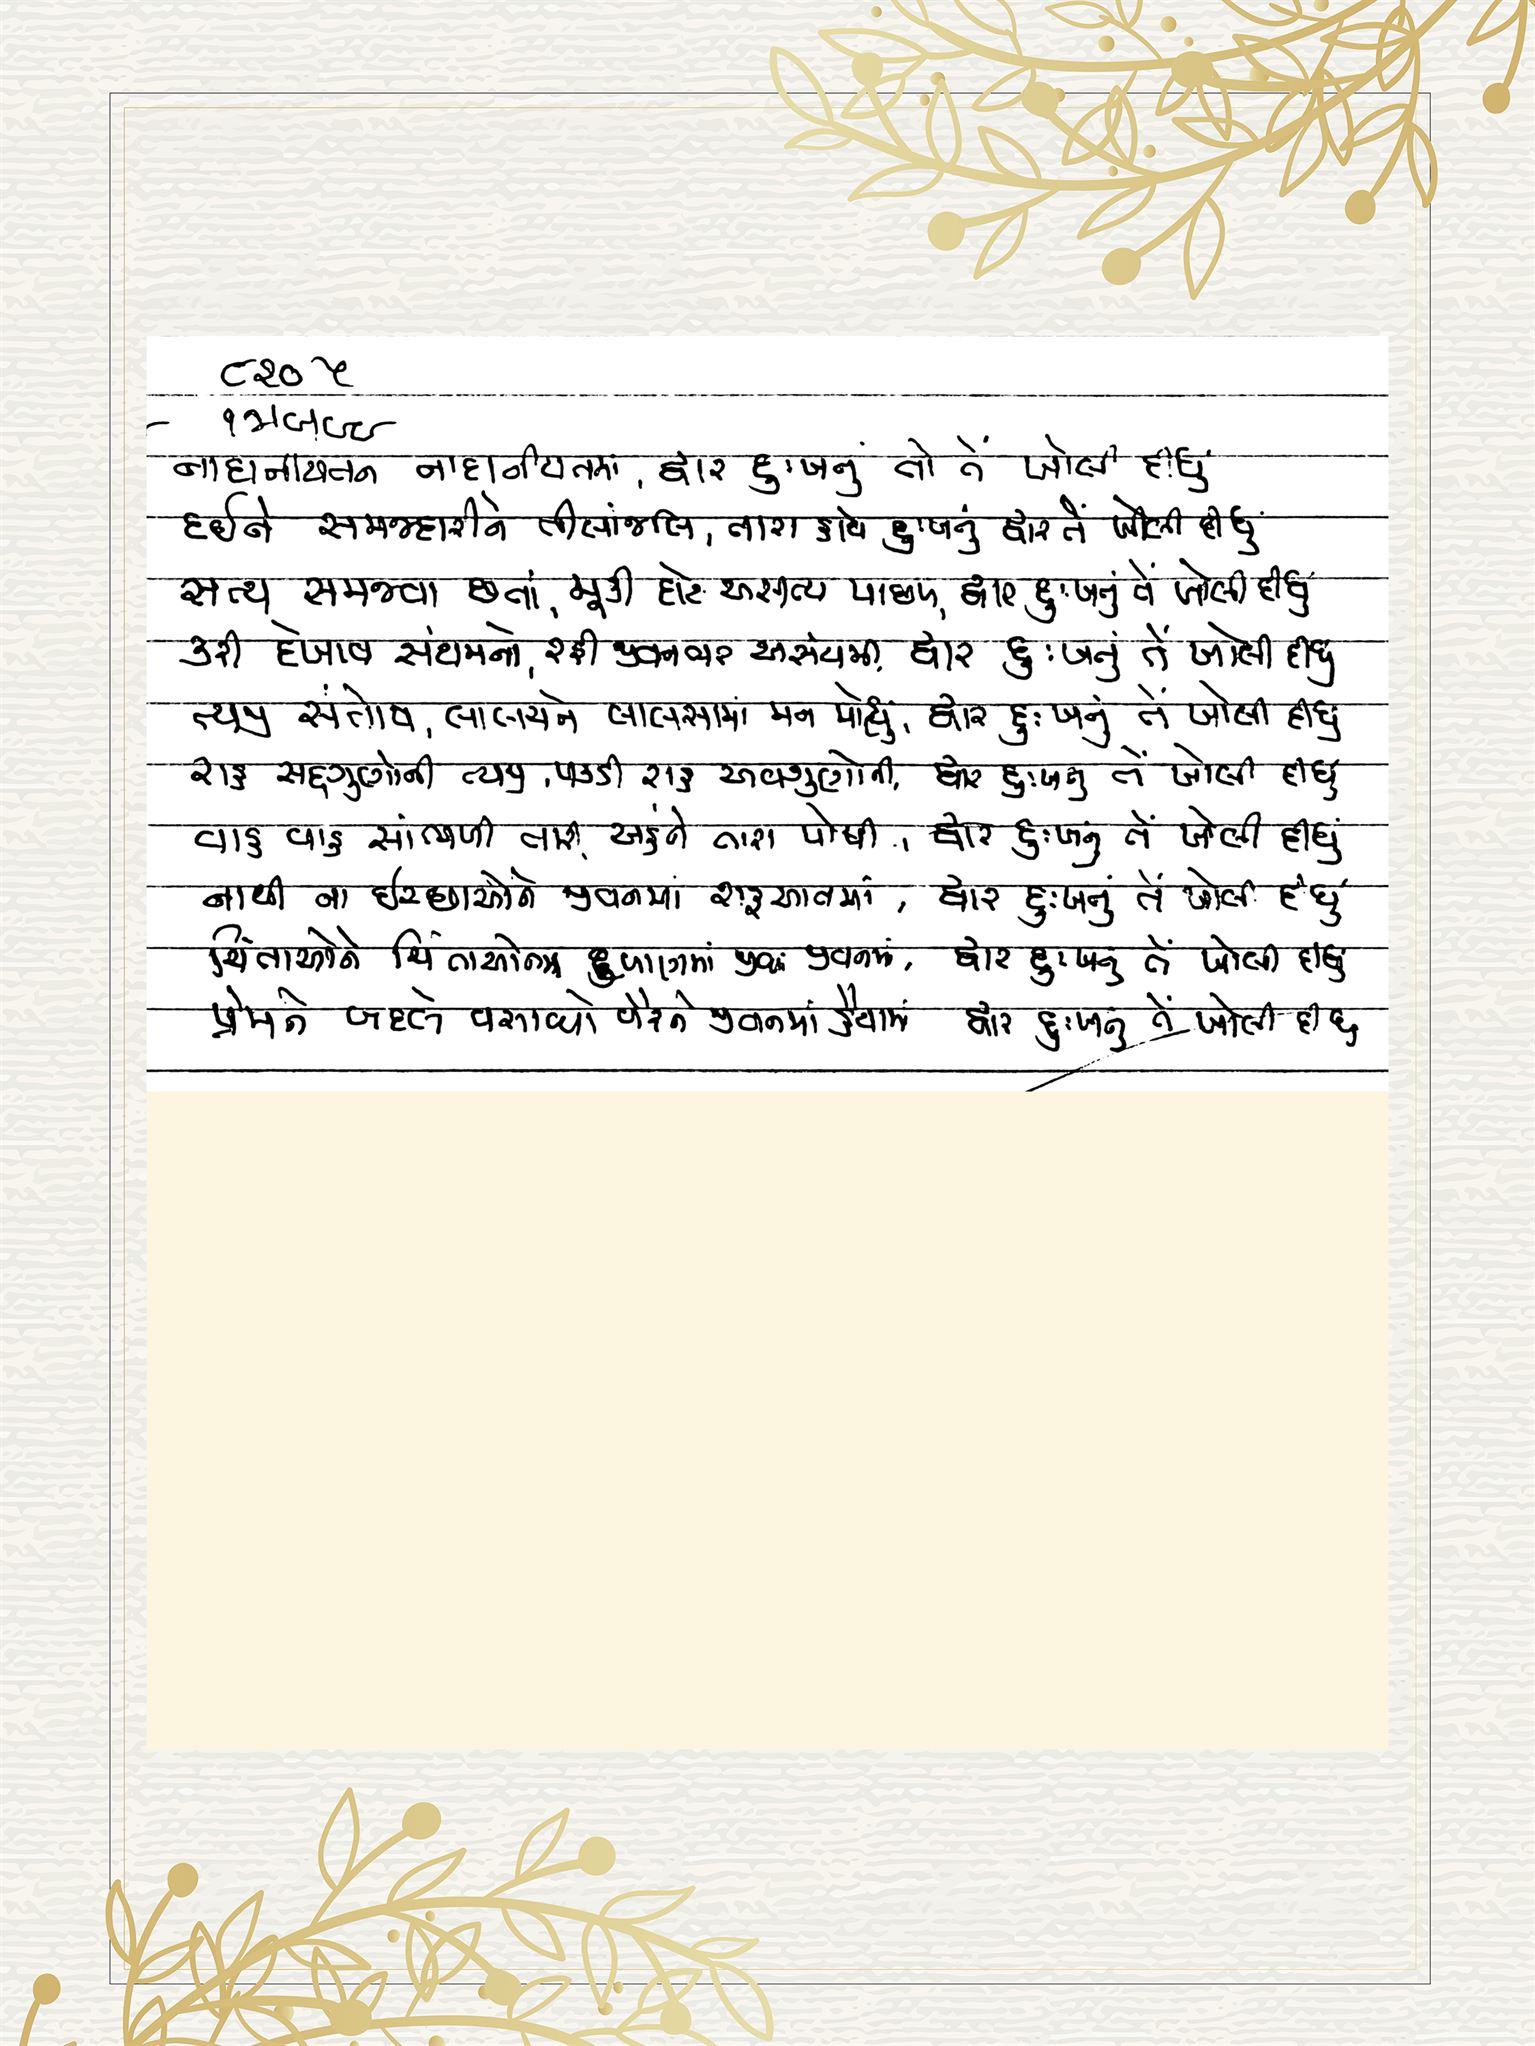 ૮૨૦૫
નાદાનીયતને નાદાનીયતમાં, દ્વાર દુઃખનું તો તેં ખોલી દીધું
દઈને સમજદારીને તીલાંજલિ, તારા હાથે દુઃખનું દ્વાર તેં ખોલી દીધું
સત્ય સમજવા છતાં, મૂકી દોટ અસત્ય પાછળ, દ્વાર દુઃખનું તેં ખોલી દીધું
કરી દેખાવ સંયમનો, રહી જીવનભર અસંયમી, દ્વાર દુઃખનું તેં ખોલી દીધું
ત્યજી સંતોષ, લાલચને લાલસામાં મન પોષ્યું, દ્વાર દુઃખનું તેં ખોલી દીધું
રાહ સદ્દગુણોની ત્યજી, પકડી રાહ અવગુણોની, દ્વાર દુઃખનુ તેં ખોલી દીધું
વાહ વાહ સાંભળી તારી, અહંને તારા પોષી, દ્વાર દુઃખનું તેં ખોલી દીધું
નાથી ના ઈચ્છાઓને જીવનમાં શરૂઆતમાં, દ્વાર દુઃખનું તેં ખોલી દીધું
ચિંતાઓને ચિંતાઓના જીવનમાં, દ્વાર દુઃખનુ તેં ખોલી દીધું
પ્રેમને બદલે વસાવ્યો વૈરને જીવનમાં હૈયામાં દ્વાર દુઃખનુ તેં ખોલી દીધુ